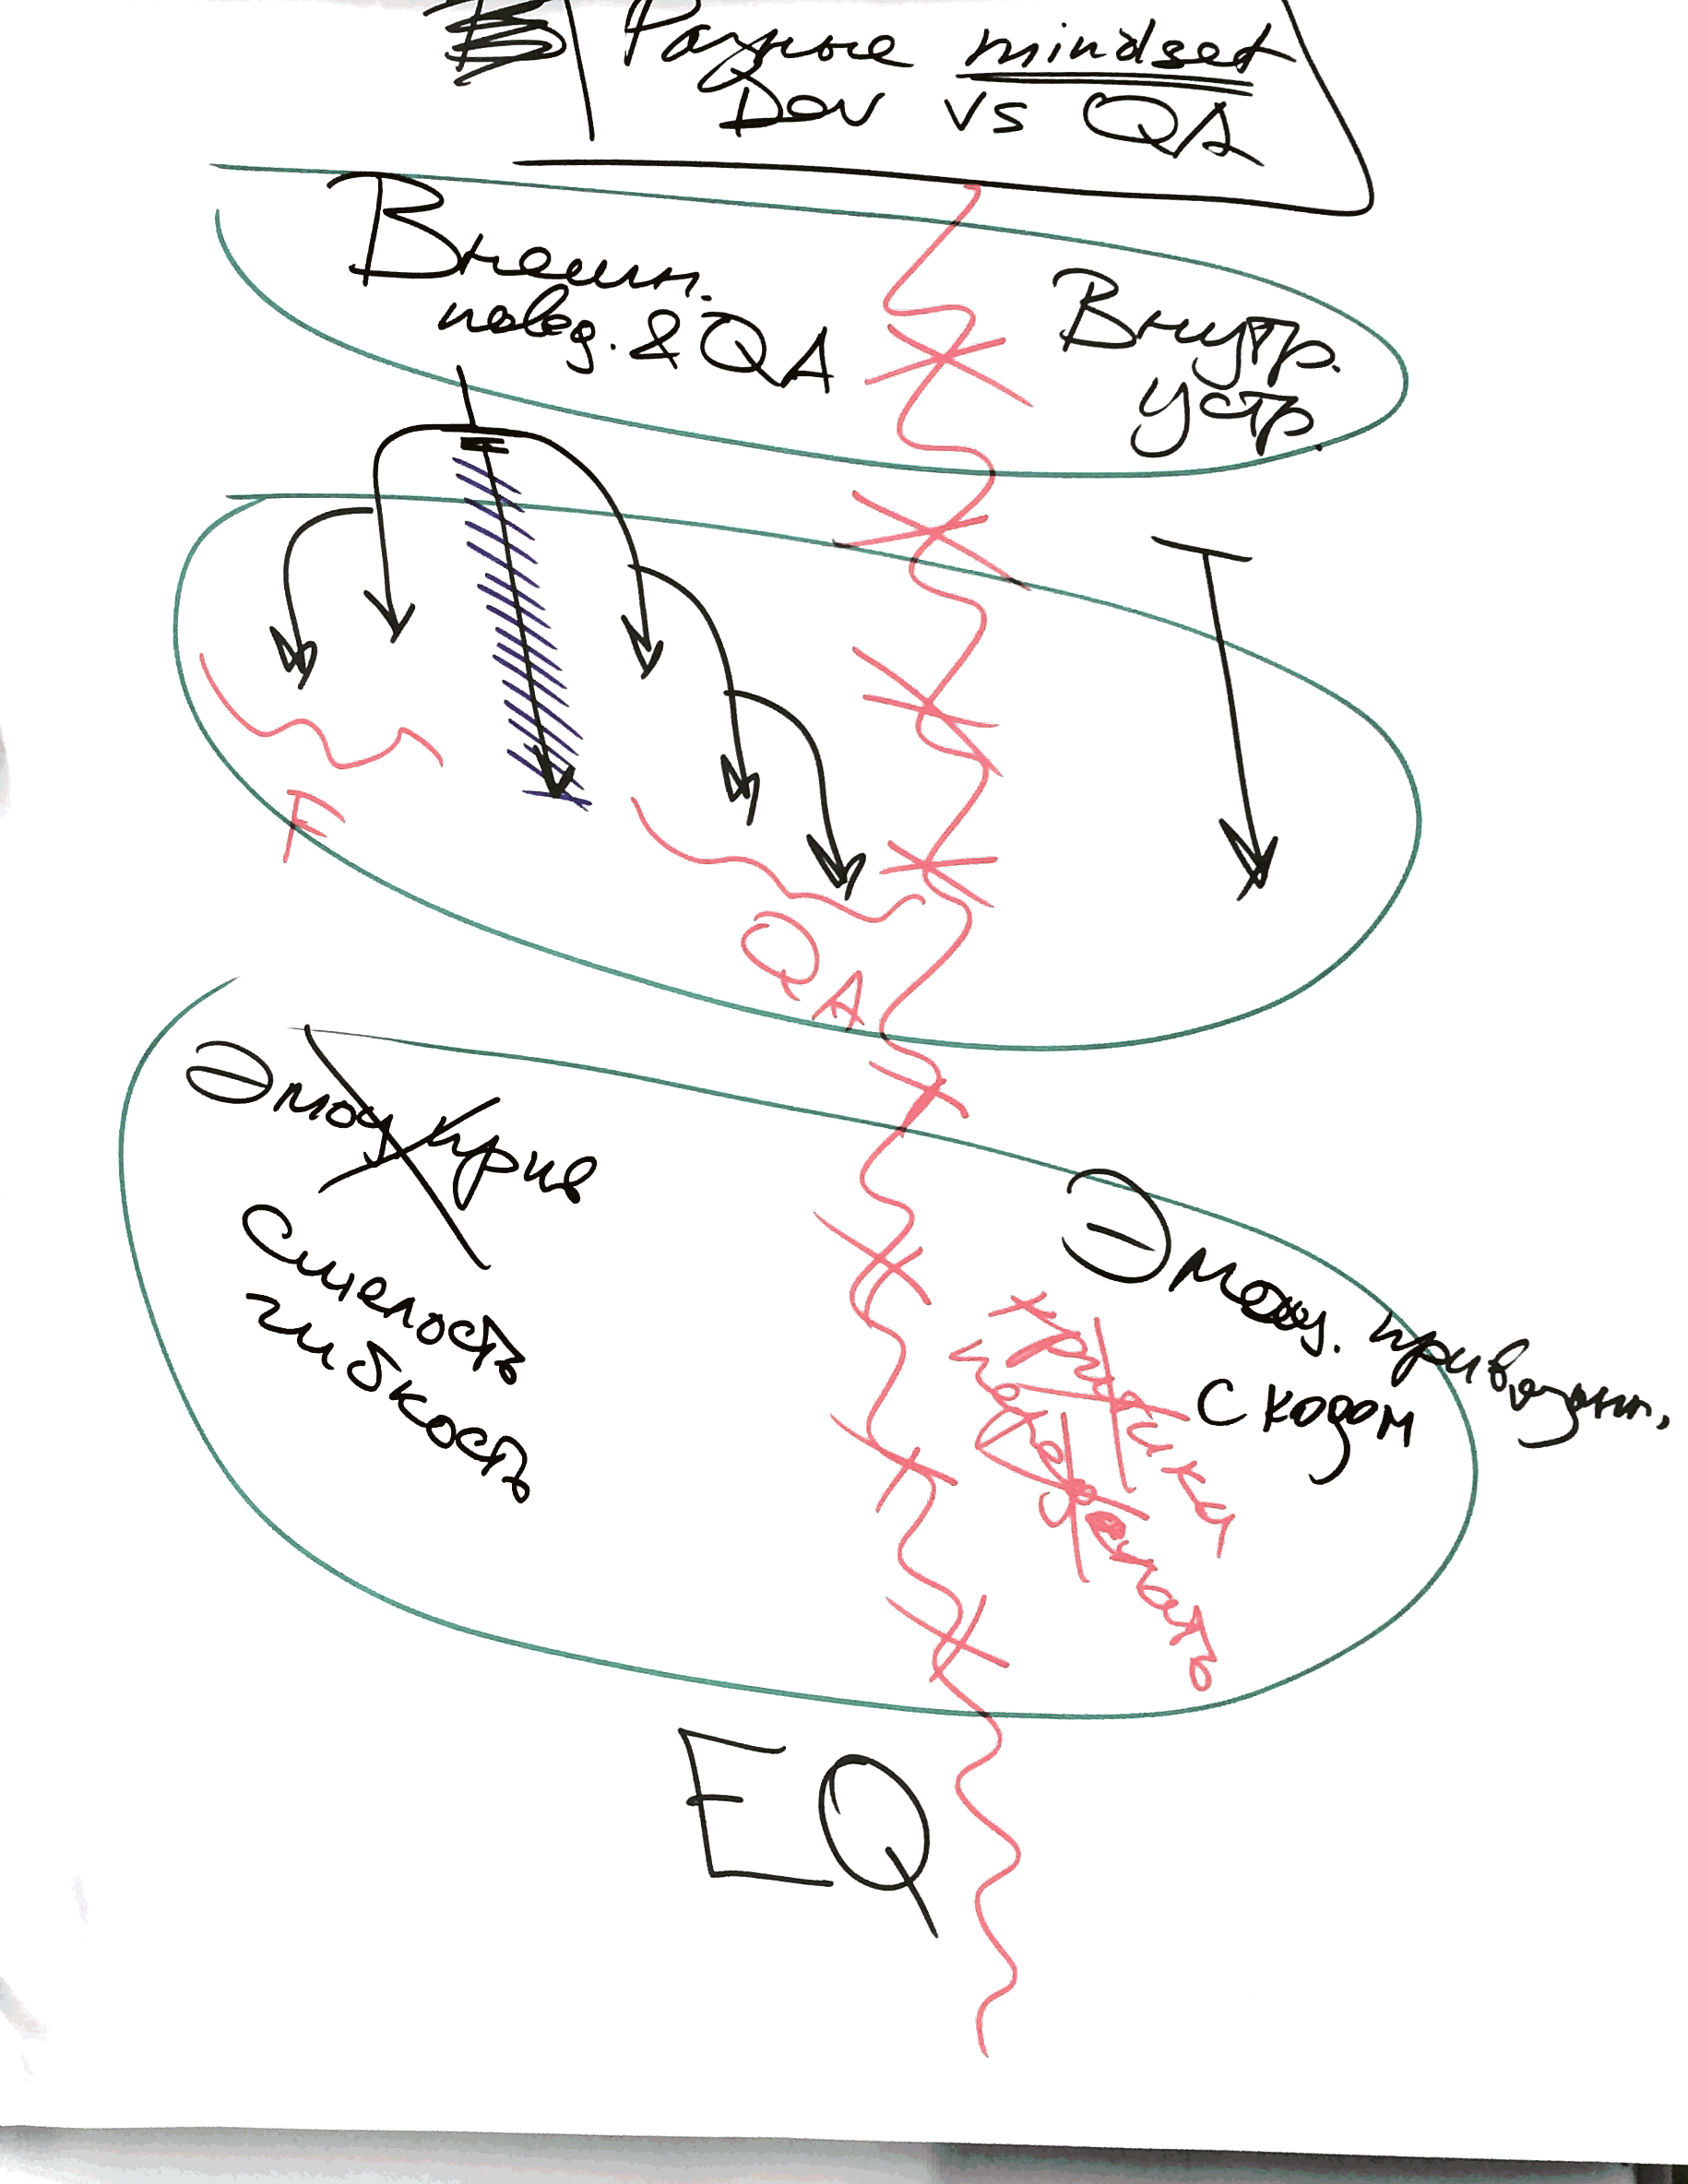 Разные mindset
Dev vs QA
Внешн.
повед. & QA
Внутр.
устр.
F
QA
Эмоц прив
Смелость
гибкость
Эмоц. привязанн.
с кодом
критики
EQ